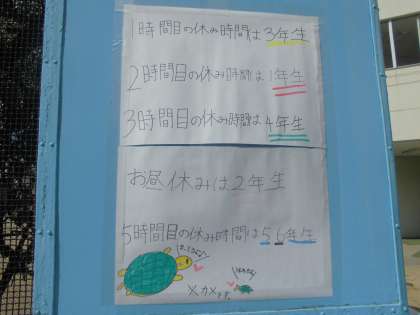 1時間目の休み時間は3年生
2時間目の休み時間は1年生
3時間目の休み時間は4年生
お昼休みは2年生
5時間目の休み時間は56年生